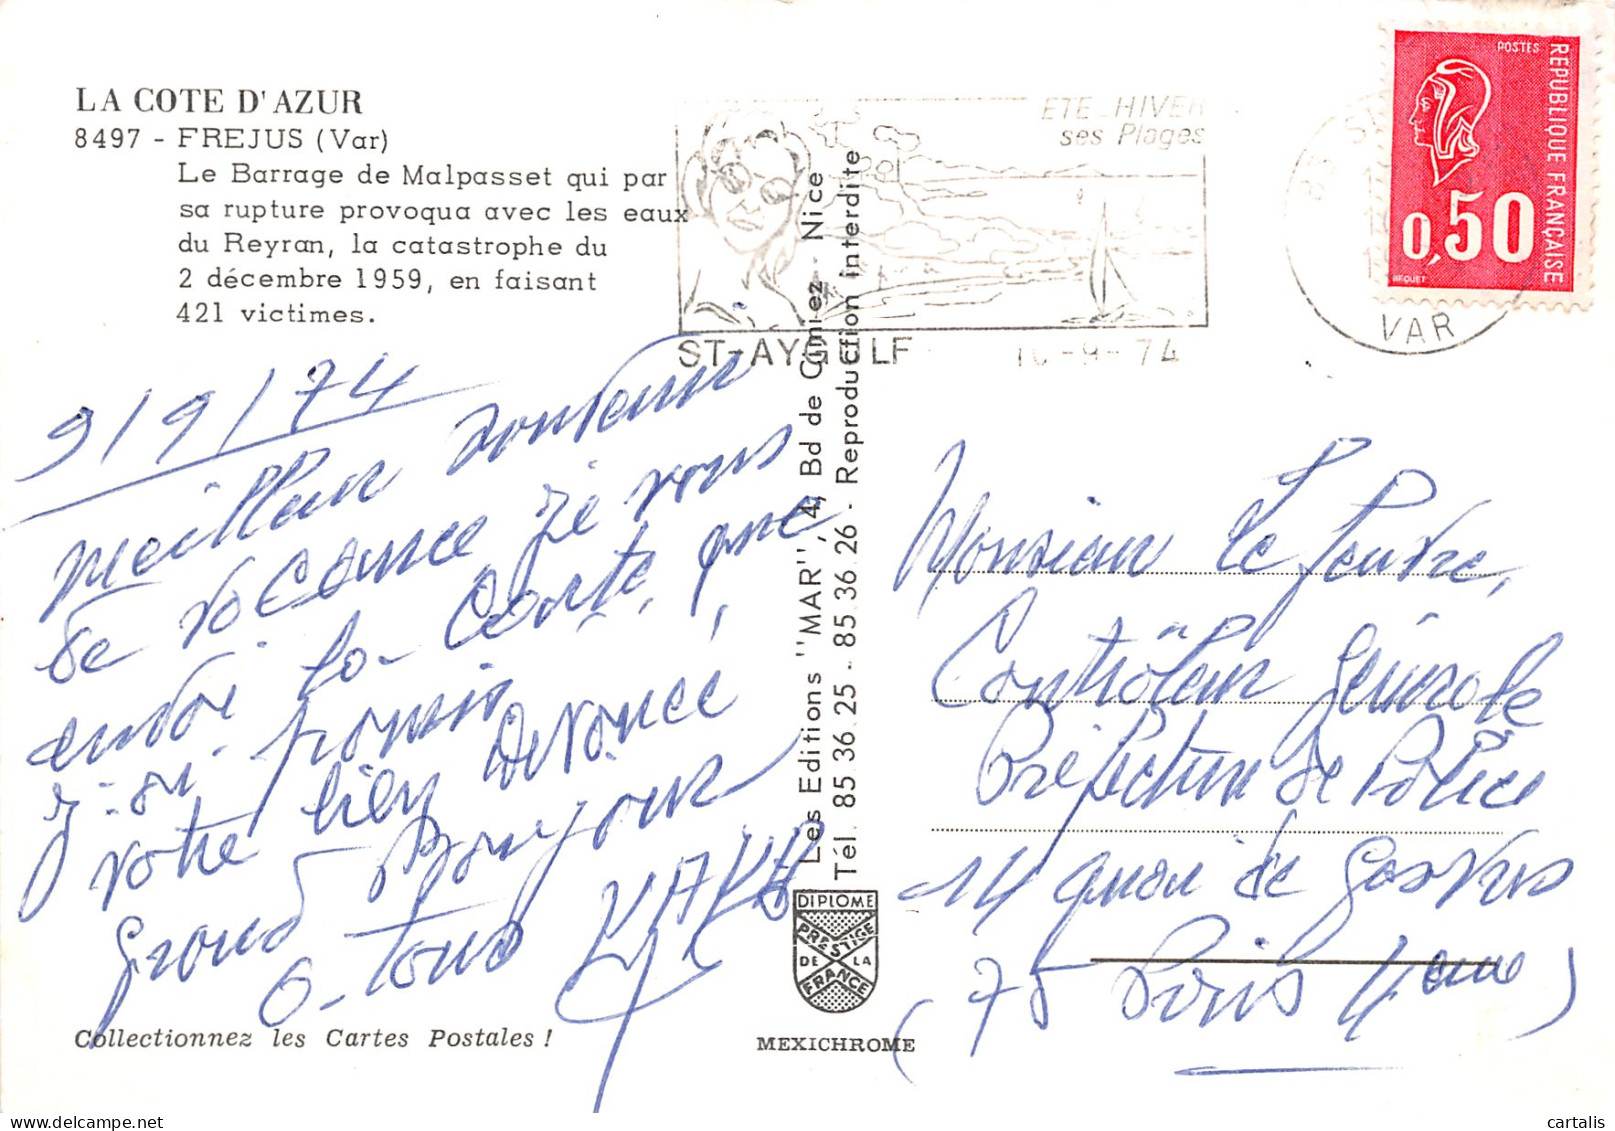 LA COTE D'AZUR
8497 - FREJUS (Var)
Le Barrage de Malpasset qui par
sa rupture provoqua avec les eaux
du Reyran, la catastrophe du
2 décembre 1959, en faisant
421 victimes.
ETE - HIVER
ses Plages
ST-AYGULF 10-9-74
VAR
POSTES
REPUBLIQUE FRANÇAISE
0,50
BEQUET
9/9/74
Meilleur souvenir
de vacance je vous
envoi la carte que
j'ai promis
votre bien Devoué,
Grand Bonjour
a tous
Les Editions "MAR", 4, Bd de Cimiez - Nice
Tél. 85.36.25 - 85.36.26 - Reproduction interdite
DIPLOME
PRESTIGE
DE LA
FRANCE
MEXICHROME
Monsieur Le
Contrôleur Générale
Préfecture de Police
14 quai de Gesvres
(75 Paris 4eme)
Collectionnez les Cartes Postales !
cartalis